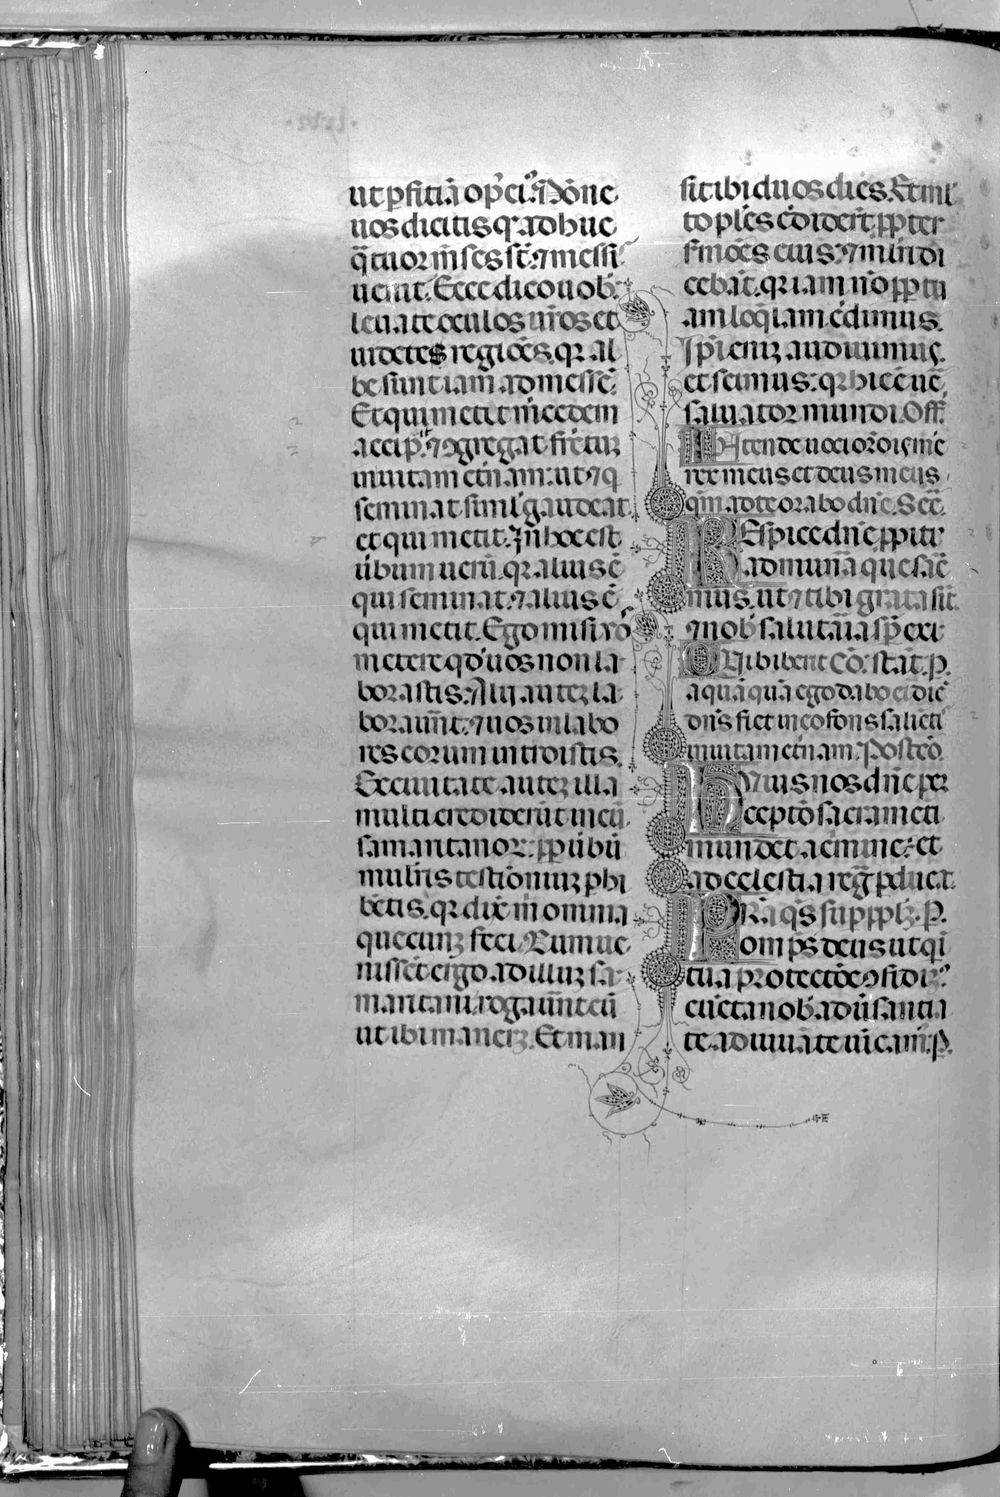 ut ꝑfitiā op̄ ei᷒. Nōne
uos dicitis qꝛ adhuc
q̄tuor m̄ses st̄: ⁊ messis
uenit. Ecce dico uob̄.
leuate oculos ur̄os et
uidetes regiōes. qꝛ al
be sunt iam ad messē.
Et qui metit m̄cedem
accip̄. ⁊ ꝯgregat fr̄ctuꝫ
in uitam et̄nam: ut ⁊ q
seminat simł gaudeat.
et qui metit. In hoc est
ūbum uerū. qꝛ alius ē
qui seminat. ⁊ alius ē
qui metit. Ego misi uō
metere qd̓ uos non la
borastis. Alij auteꝫ la
borauūnt: ⁊ uos in labo
res eorum introistis.
Ex ciuitate auteꝫ illa
multi crediderūt in eū
samaritanoꝝ: ꝓp ūbū
muliēis testīoniuꝫ ꝑhi
bētis. qꝛ dix̄ m̄ omnia
quecunqꝫ feci. Cum ue
nissēt ergo ad illuꝫ sa
maritani: rogauūnt eū
ut ibi maneꝫ. Et man
sit ibi duos dies. Et ml̓
to pl̄es c̄dider̄t ꝓpter
s̄mōēs eius: ⁊ mul̓i di
cebāt. qꝛ iam nō ꝓp tu
am loq̄lam c̄dimus.
Ip̄i eniꝫ audiuimus.
et scimus: qꝛ hic ē ue᷒
saluator mundi. Off̄.
Intende uoci or̄ōis mee
rex meus et deus meus
qm̄ ad te orabo dn̄e. Sec̄.
Respice dn̄e ꝓpiti᷒
ad mun̄a que sac̄
mus. ut ⁊ tibi grata sīt.
⁊ nob̄ salutāia sp̄ exi
Qui biberit Cō. stāt. P.
aquā quā ego dabo ei dic̄
dn̄s fiet in eo fons salieti᷒
in uitam et̄nam. Postcō.
Huius nos dn̄e ꝑ
ceptō sacrameti
mundet a c̄mine: et
ad celestia reḡ ꝑducat.
Pr̄a q̄s suꝑ pp̄lꝫ. P.
om̄ps deus ut qi
tua protectōe ꝯfidiꝫ᷒
cūcta nob̄ adūsantia
te adiuuāte uīcam᷒. P.